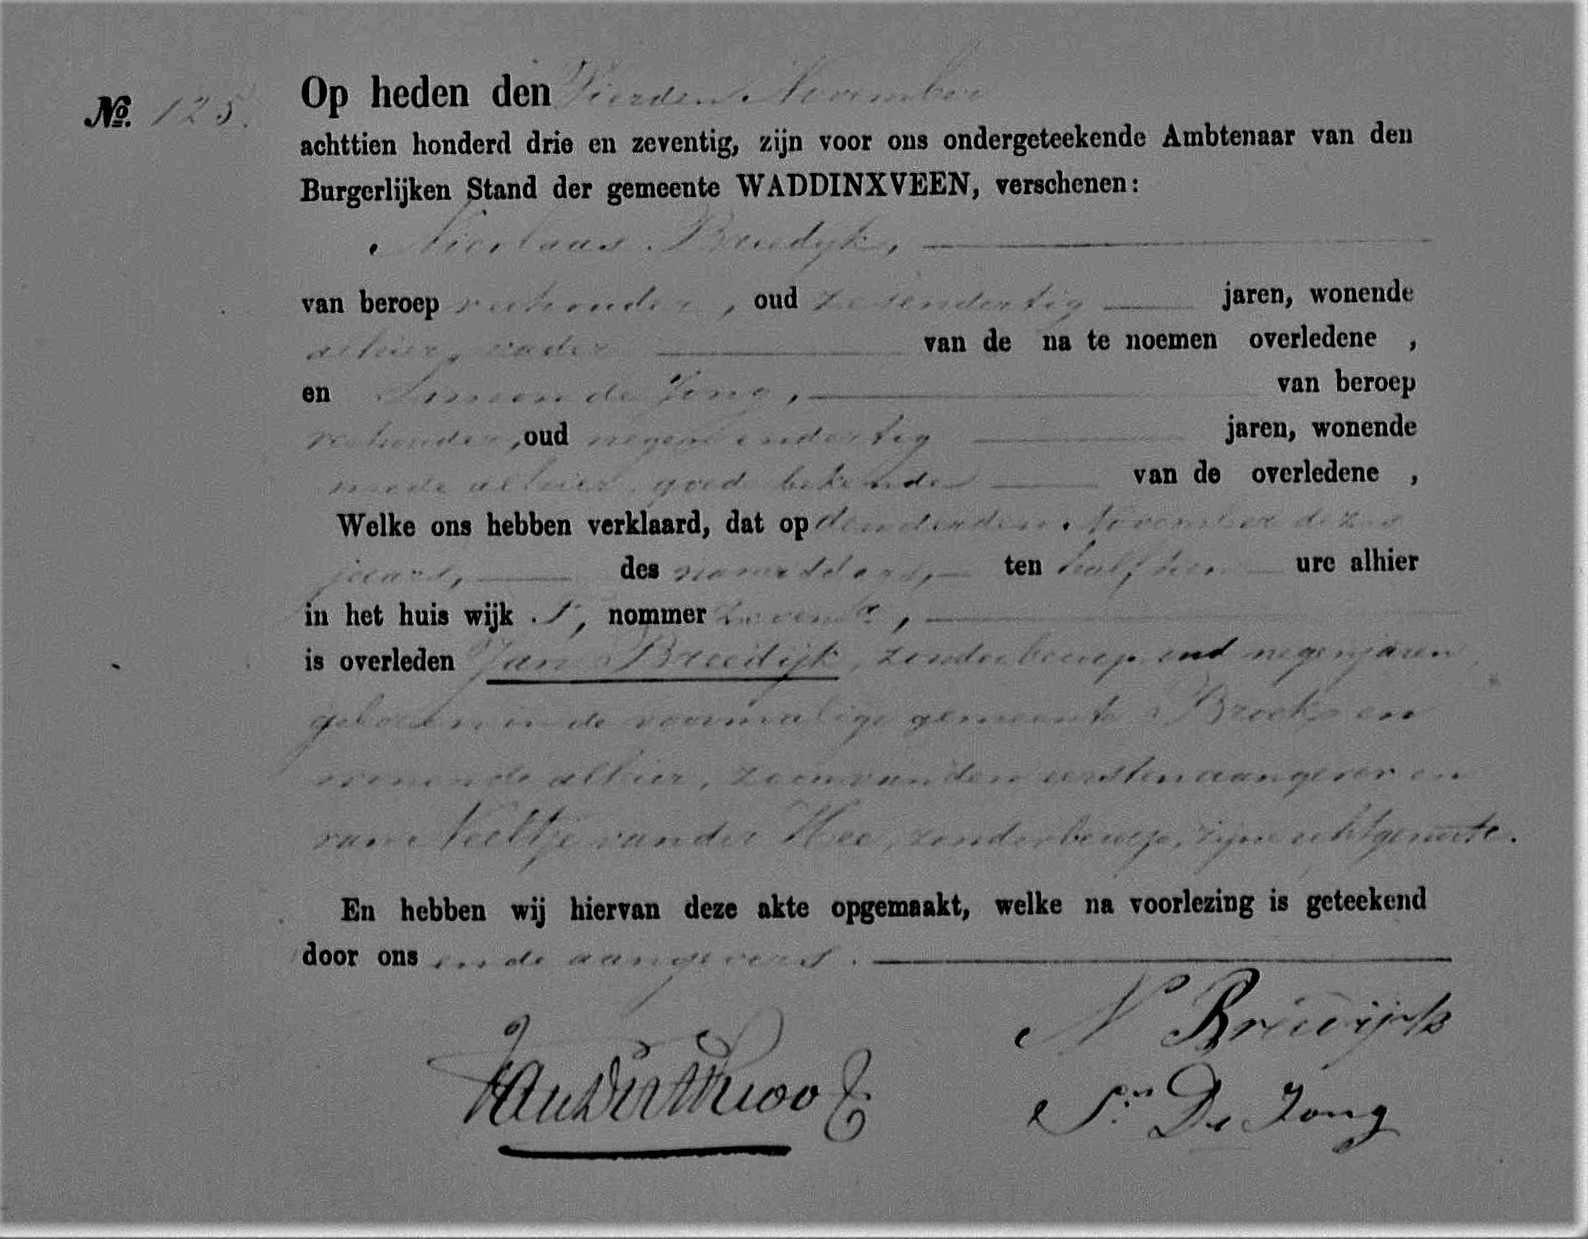 No. 125.
Op heden den Vierden November
achttien honderd drie en zeventig, zijn voor ons ondergeteekende Ambtenaar van den
Burgerlijken Stand der gemeente WADDINXVEEN, verschenen:
Nicolaas Breedijk,
van beroep veehouder, oud zesendertig jaren, wonende
alhier, vader van de na te noemen overledene ,
en Simon de Jong, van beroep
veehouder, oud negenendertig jaren, wonende
mede alhier, goede bekende van de overledene ,
Welke ons hebben verklaard, dat op den derden November dezes
jaars, des namiddags, ten half tien ure alhier
in het huis wijk , nommer ,
is overleden Jan Breedijk, zonder beroep, oud negen jaren,
geboren in de voormalige gemeente Broek en
wonende alhier, zoon van den eersten aangever en
van Neeltje van der Hee, zonder beroep, zijne echtgenoote.
En hebben wij hiervan deze akte opgemaakt, welke na voorlezing is geteekend
door ons en de aangevers.
N Breedijk
Sn. De Jong